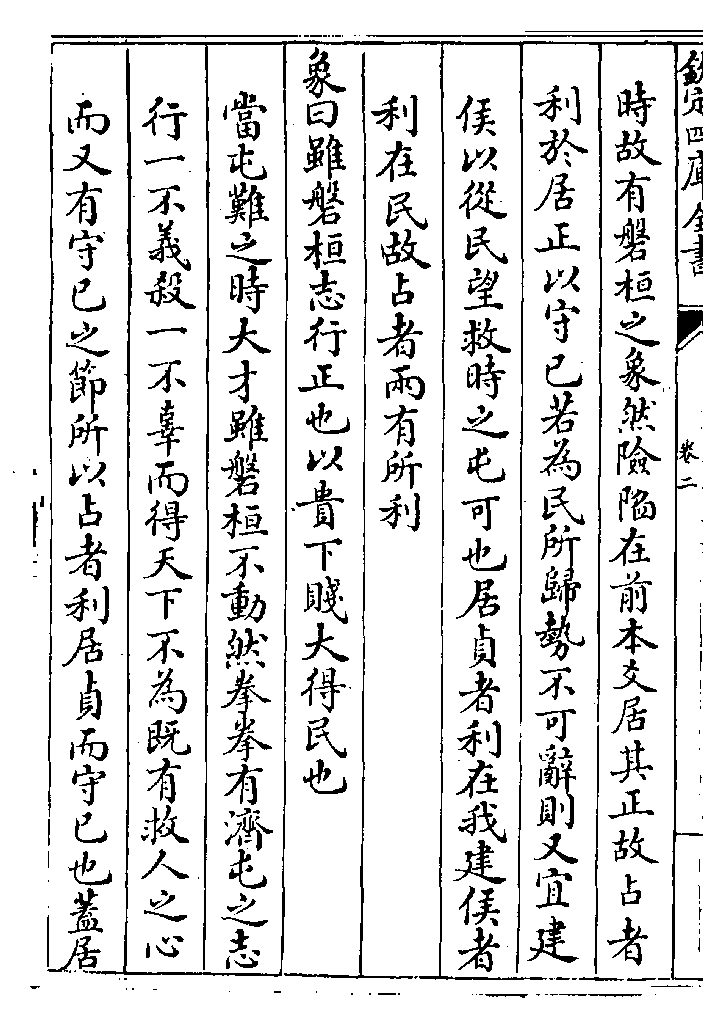 欽定四庫全書
卷二
時故有磐桓之象然險陷在前本爻居其正故占者
利於居正以守已若為民所歸勢不可辭則又宜建
侯以從民望救時之屯可也居貞者利在我建侯者
利在民故占者兩有所利
象曰雖磐桓志行正也以貴下賤大得民也
當屯難之時大才雖磐桓不動然拳拳有濟屯之志
行一不義殺一不辜而得天下不為既有救人之心
而又有守已之節所以占者利居貞而守已也蓋居